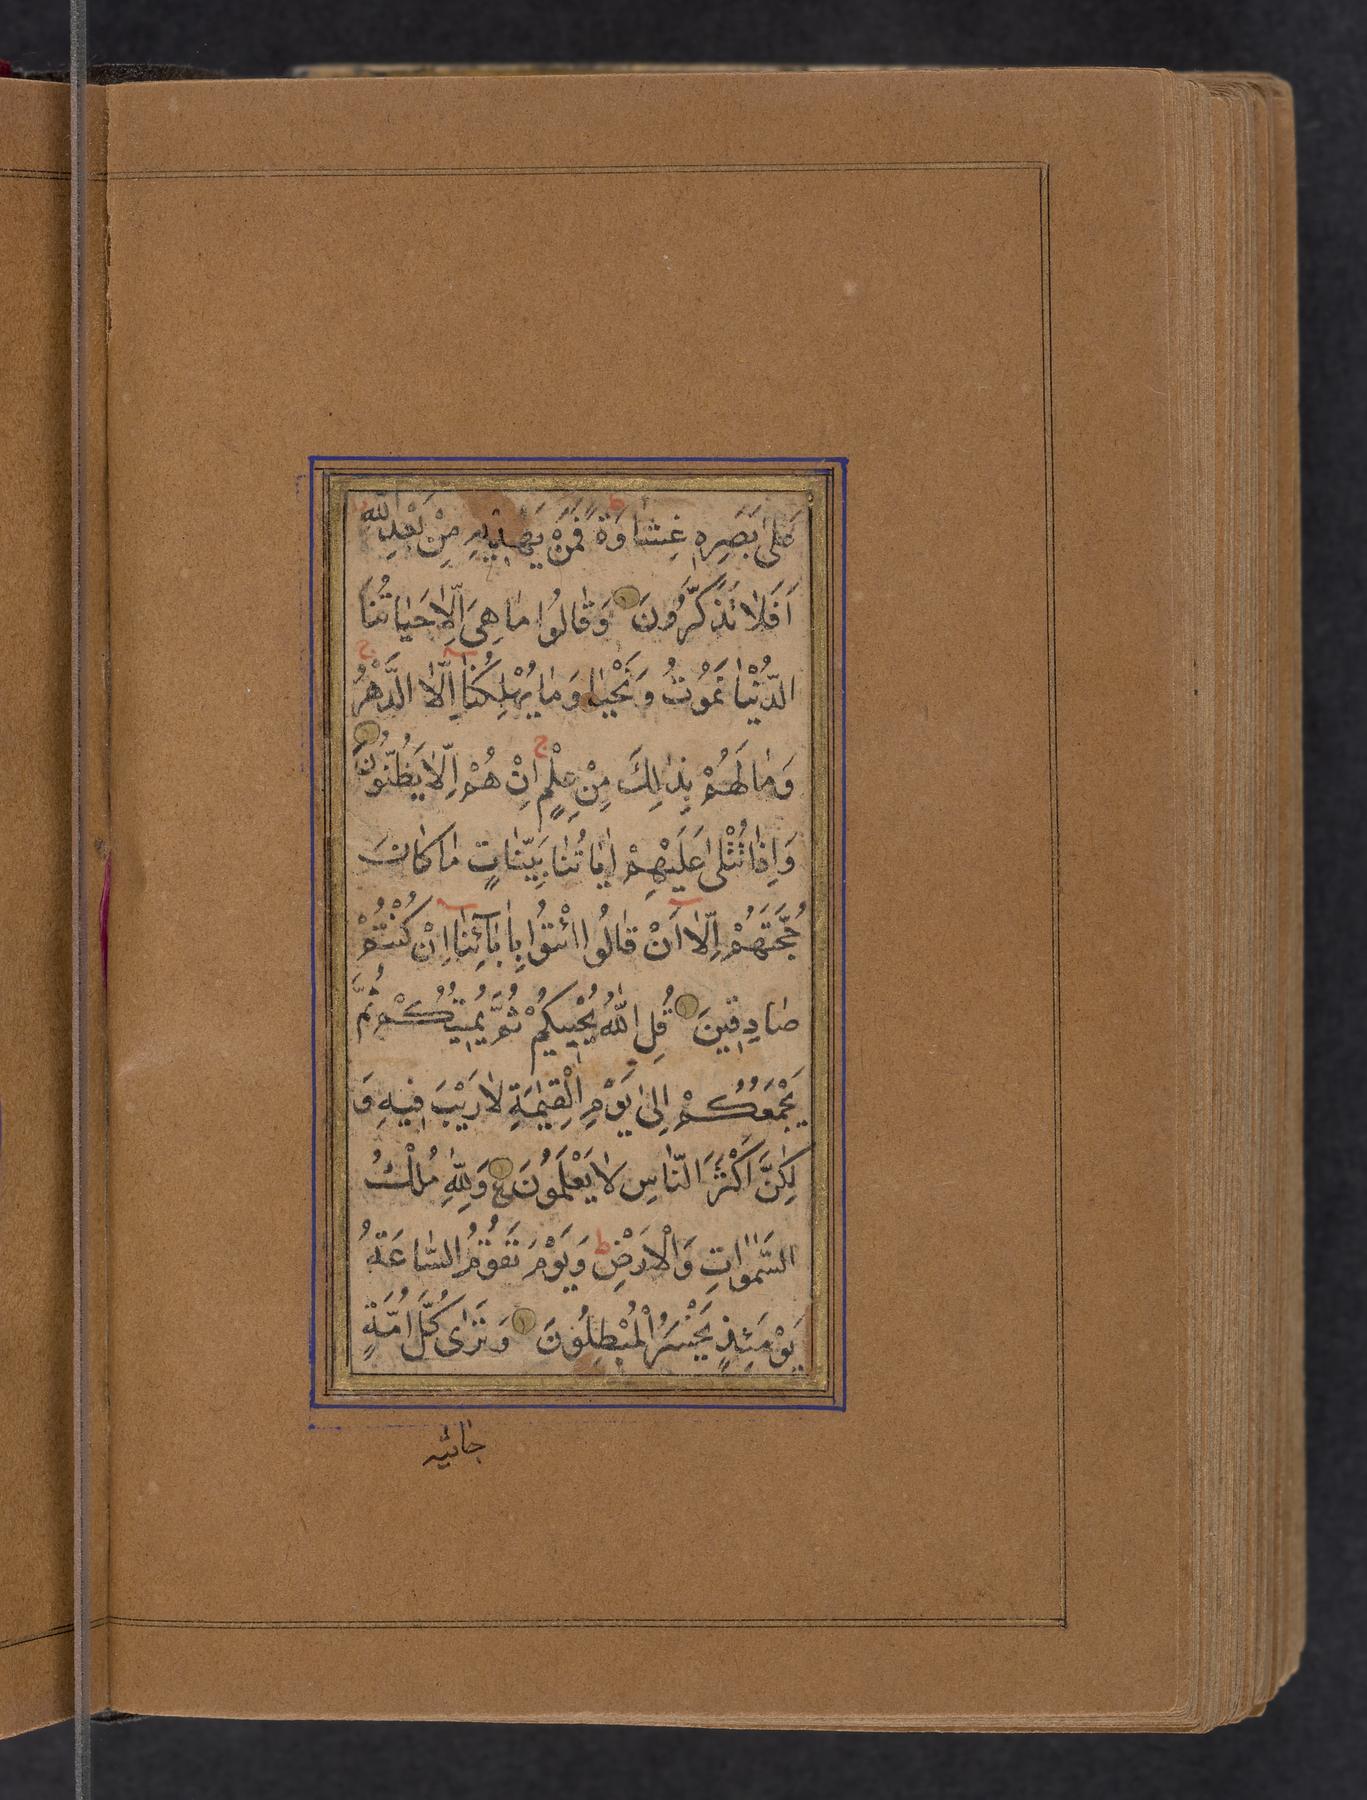 عَلىٰ بَصَرِهٖ غِشٰاوَةً فَمَنْ يَهْدٖيهِ مِنْ بَعْدِ اللّٰهِ
اَفَلاٰ تَذَكَّرُونَ وَقٰالُوا مٰا هِىَ اِلّاٰ حَيٰاتُنَا
الدُّنْيٰا نَمُوْتُ وَنَحْيٰا وَمٰا يُهْلِكُنٰا اِلّاَ الدَّهْرُ
وَمٰا لَهُمْ بِذٰلِكَ مِنْ عِلْمٍ اِنْ هُمْ اِلّاٰ يَظُنُّونَ
وَاِذٰا تُتْلىٰ عَلَيْهِمْ اٰيٰاتُنٰا بَيِّنٰاتٍ مٰا كٰانَ
حُجَّتَهُمْ اِلّاٰ اَنْ قٰالُوا ائْتُوا بِاٰبٰآئِنٰا اِنْ كُنْتُمْ
صٰادِقٖينَ قُلِ اللّٰهُ يُحْيٖيكُمْ ثُمَّ يُمٖيتُكُمْ ثُمَّ
يَجْمَعُكُمْ اِلىٰ يَوْمِ الْقِيٰمَةِ لاٰ رَيْبَ فٖيهِ وَ
لٰكِنَّ اَكْثَرَ النّٰاسِ لاٰ يَعْلَمُونَ ع وَلِلّٰهِ مُلْكُ
السَّمٰوٰاتِ وَالْاَرْضِ ط وَيَوْمَ تَقُوْمُ السّٰاعَةُ
يَوْمَئِذٍ يَخْسَرُ الْمُبْطِلُونَ وَتَرٰى كُلَّ اُمَّةٍ
جٰاثيه